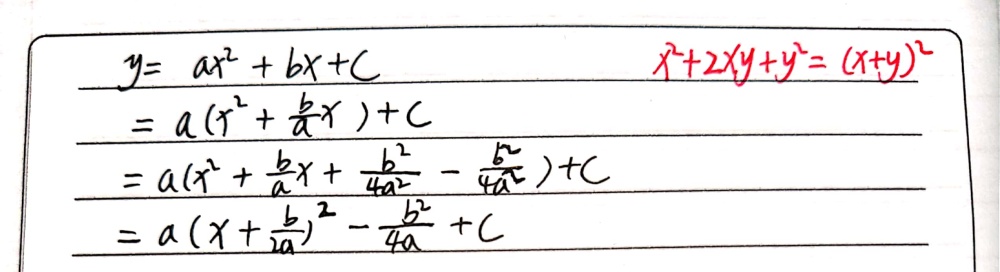 y= ax² + bx+C
x²+2xy+y²= (x+y)²
= a(x² + b/a x ) +C
= a(x² + b/a x + b²/4a² - b²/4a² ) +C
= a(x + b/2a)² - b²/4a +C